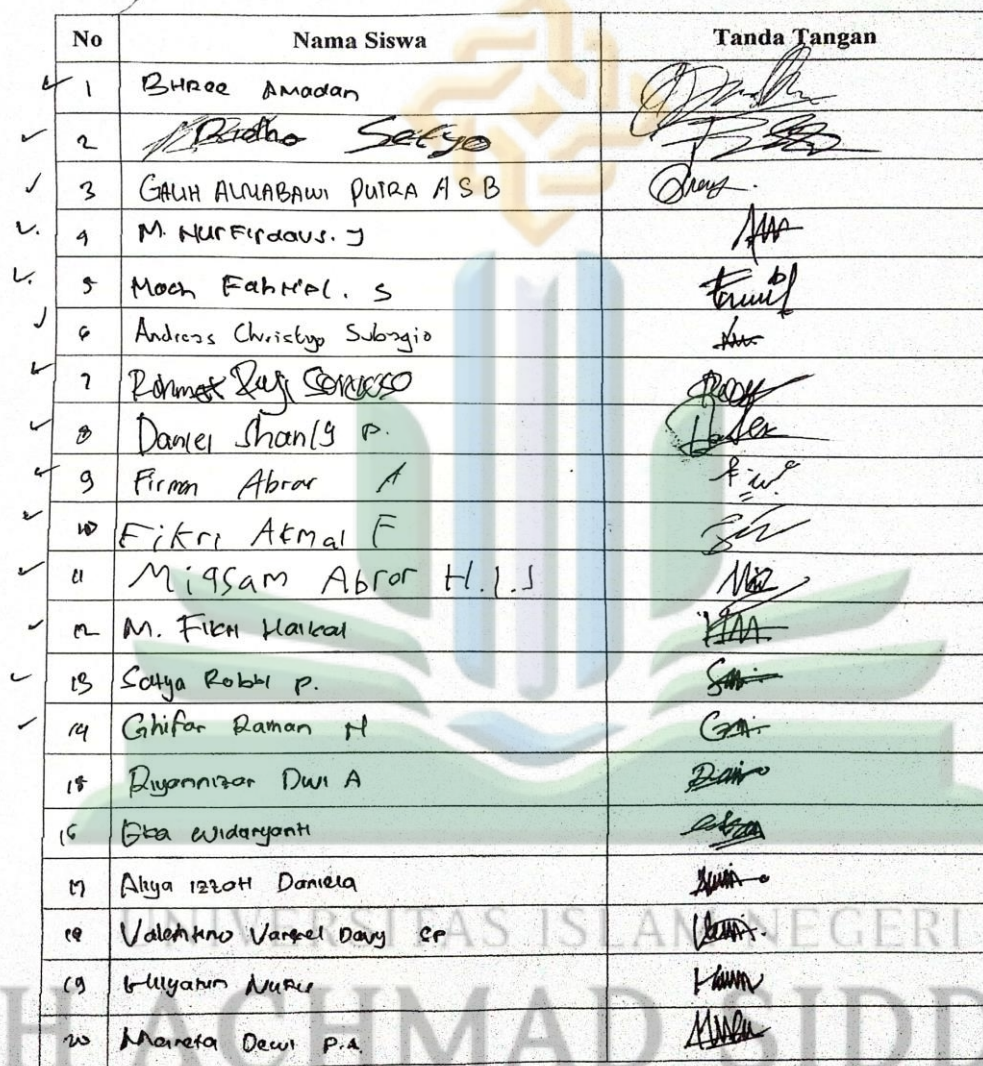 No Nama Siswa Tanda Tangan
1 BHREE AMADAN
2 Ridho Setyo
3 GALIH ALNABAWI PUTRA A S B
4 M. NUR Firdaus. J
5 Moch Fahriel. S
6 Andreas Christyo Subagio
7 Rohmat
8 Daniel Shanly P.
9 Firman Abrar A
10 Fikri Akmal F
11 Miqsam Abror H.I.S
12 M. Fikri Haikal
13 Satya Robbi P.
14 Ghifar Raman N
15 Riyannizar Dwi A
16 Eka Widaryanti
17 Aliya Izzati Daniela
18 Valentino Varrel Davy
19
20 Mareta Dewi P.A.
UNIVERSITAS ISLAM NEGERI
H ACHMAD SIDD